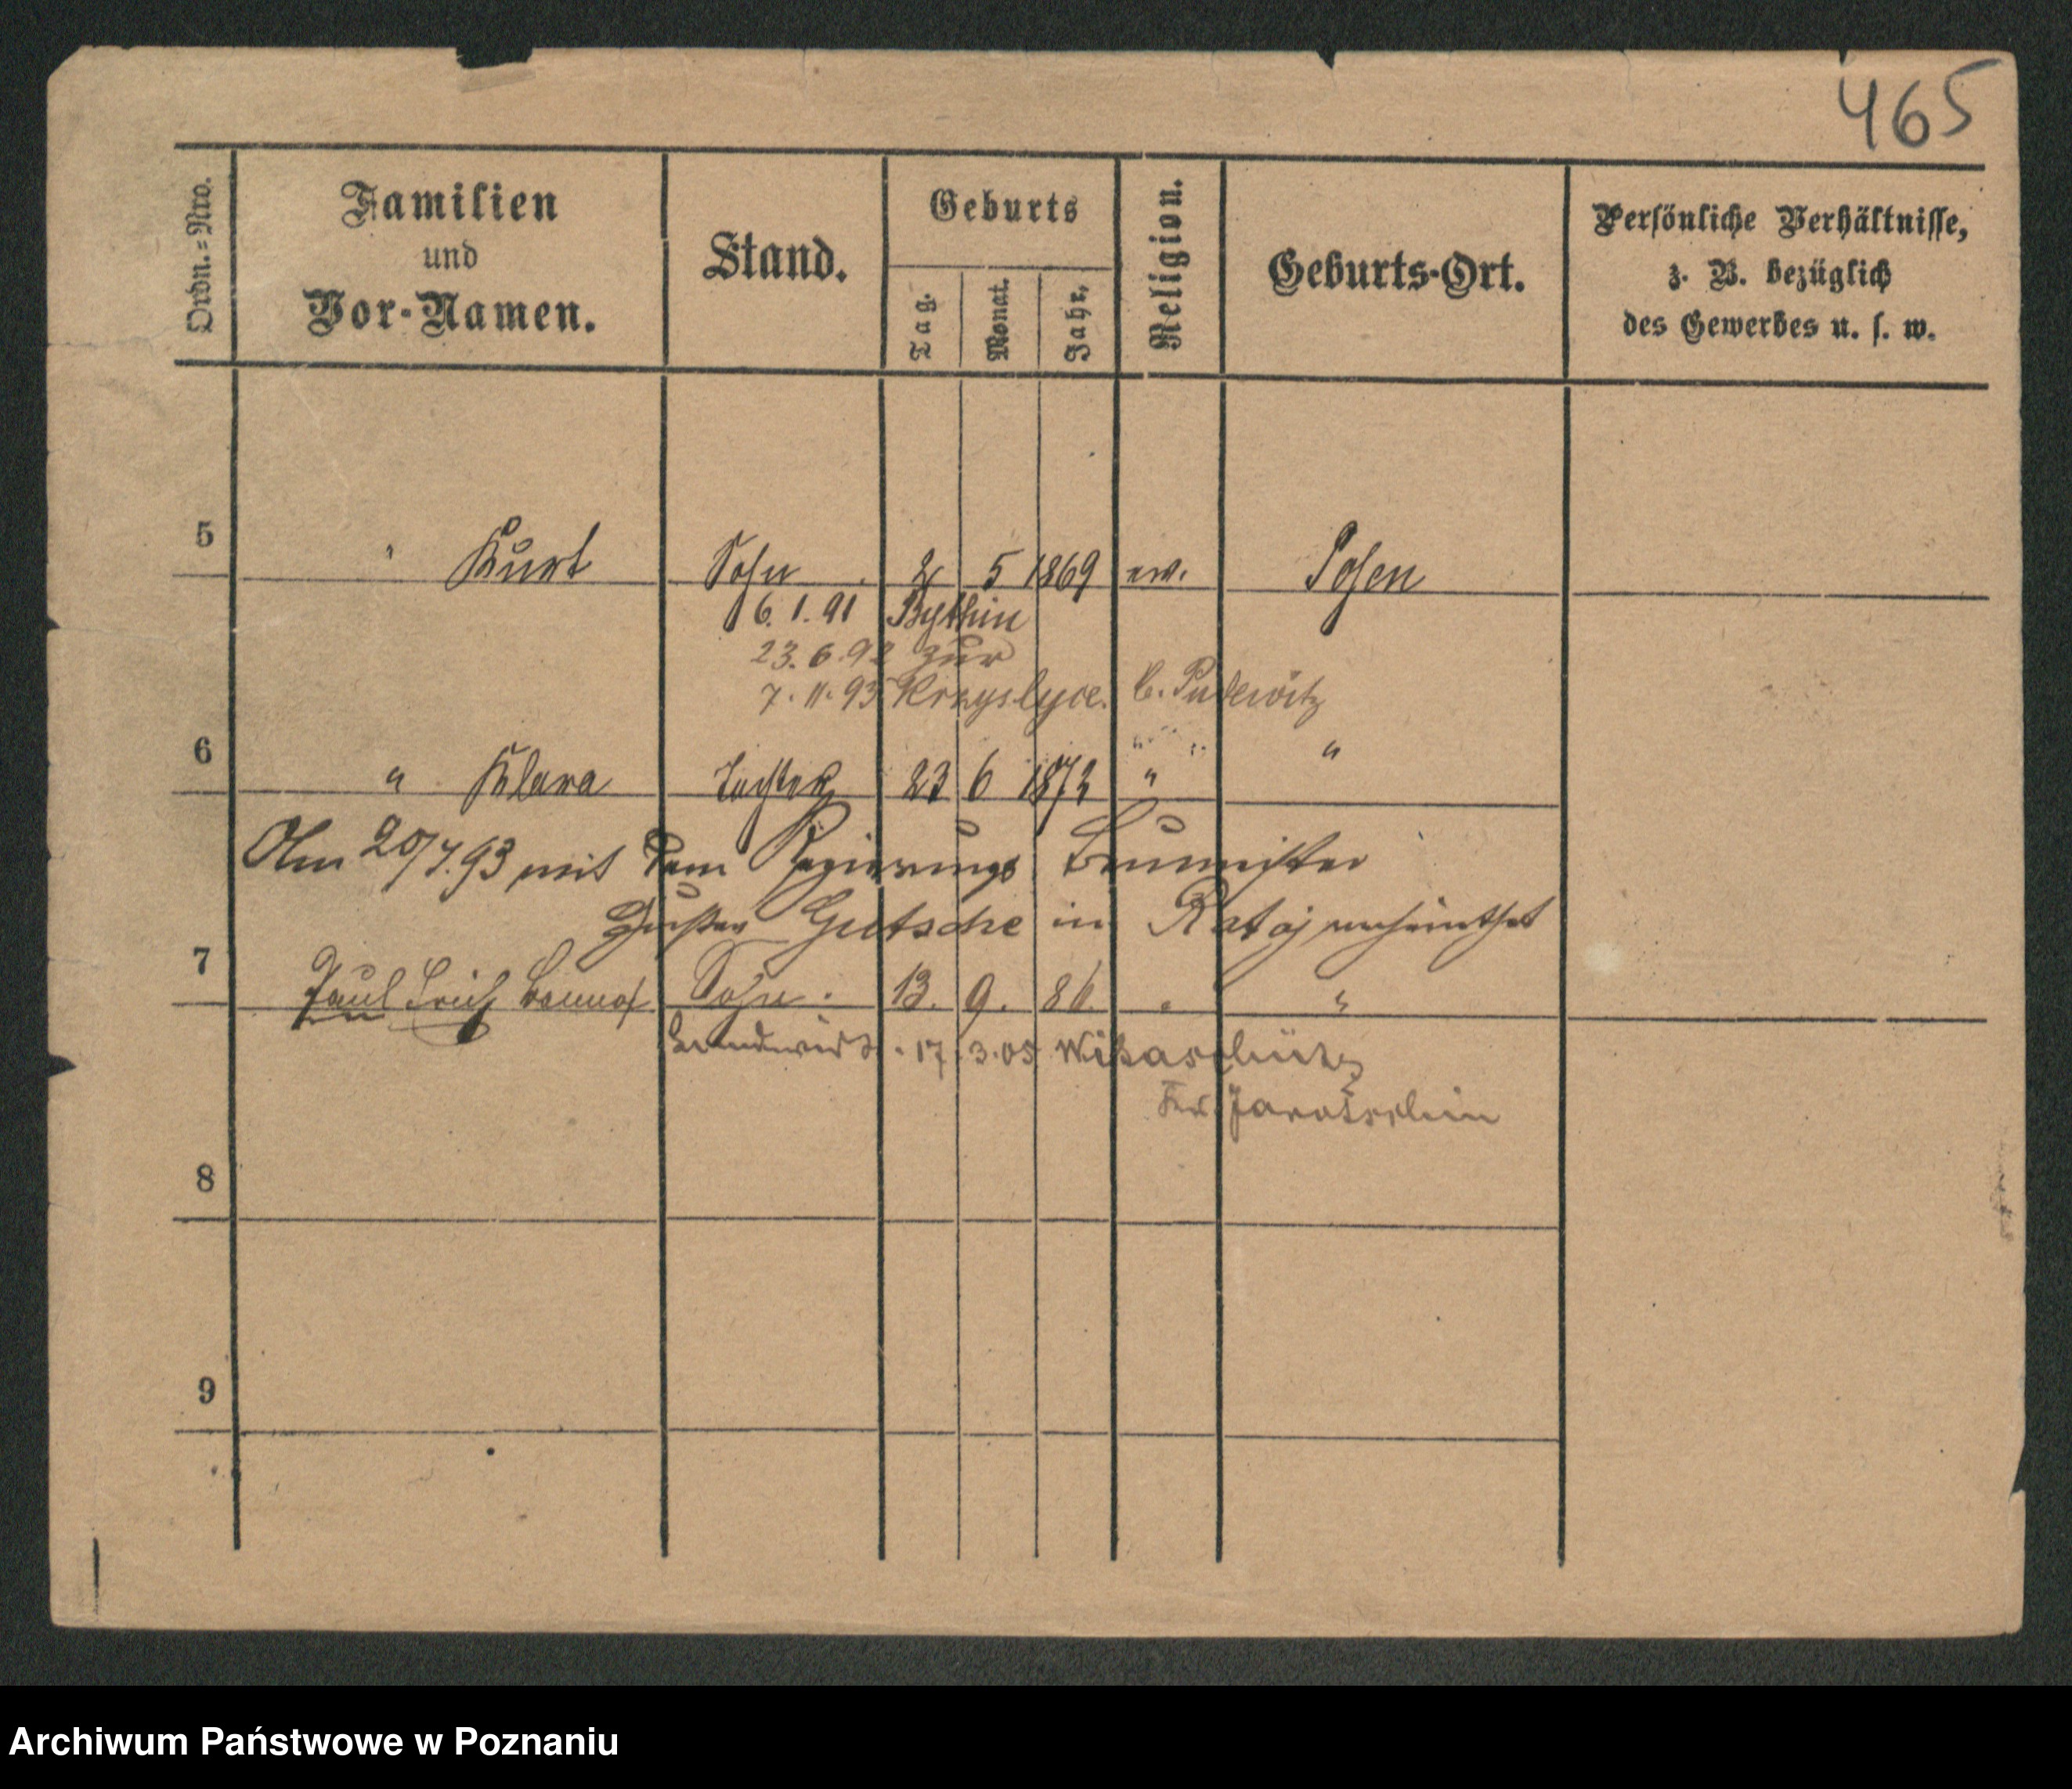 465
Ordn.=Nro.
Familien
und
Vor-Namen.
Stand.
Geburts
Tag.
Monat.
Jahr.
Religion.
Geburts-Ort.
Persönliche Verhältnisse,
z. B. bezüglich
des Gewerbes u. s. w.
5 " Kurt Sohn 2 5 1869 ev. Posen
6. 1. 91 Bythin
23. 6. 92 zur
7. 11. 93 b. Pudewitz
6 " Klara Tochter 23 6 1872 " "
Am 20/7.93 mit dem Regierungs Baumeister
Gustav Gutsche in Rataj verheirathet
7 Paul Erich Sohn. 13. 9. 86. " "
Landwirt. 17. 3. 05 Witaschütz
Kr. Jarotschin
8
9
Archiwum Państwowe w Poznaniu